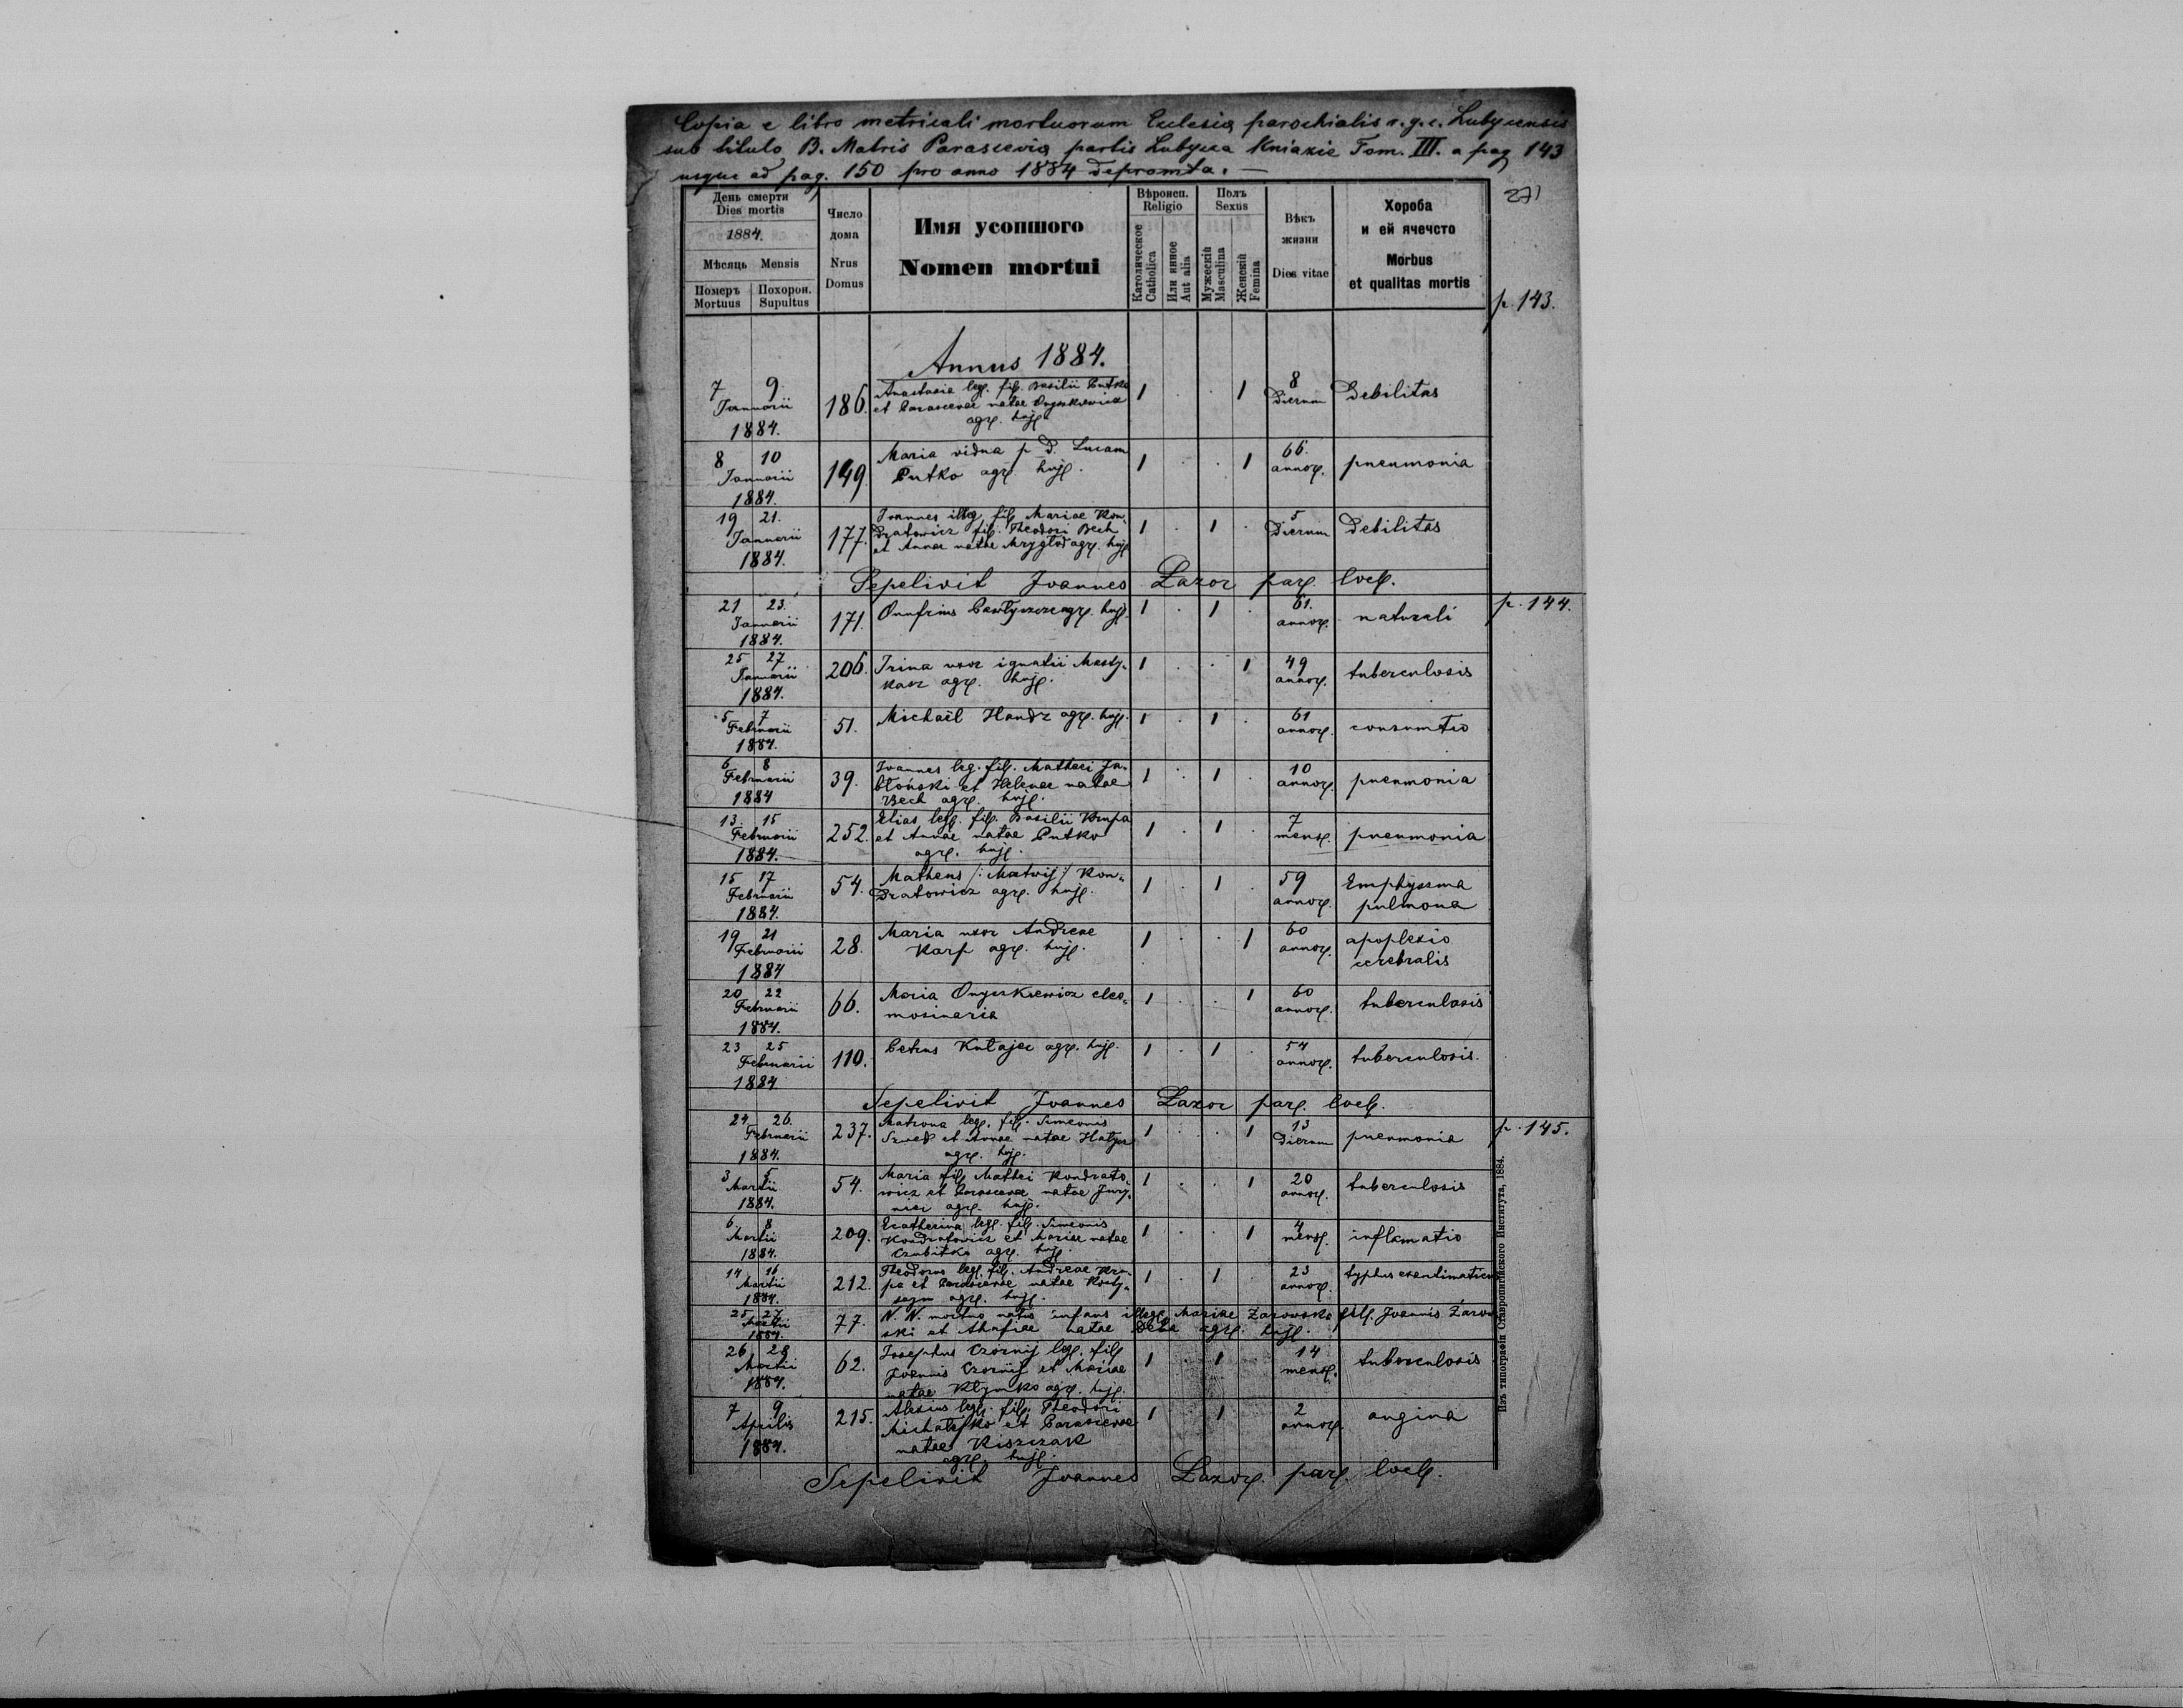 Copia e libro metricali mortuorum Eclesia parochialis r. g. c. Lubycensis
sub titulo B. Matris Parascevia partis Lubycza Kniazie Tom. III. a pag 143
usque ad pag. 150 pro anno 1884 depromta. —
271
День смерти
Dies mortis
1884.
Мѣсяць Mensis
Померъ Mortuus
Похорон. Supultus
Число дома
Nrus Domus
Имя усопшого
Nomen mortui
Вѣроисп.
Religio
Католическое Catholica
Или инное Aut alia
Полъ
Sexus
Мужескій Masculina
Женскій Femina
Вѣкъ жизни
Dies vitae
Хороба и ей ячечсто
Morbus et qualitas mortis
p. 143.
Annus 1884.
7 9 Januarii 1884. 186. Anastasia leg. fil. Basilii Putko
et Parascevae natae Onyszkiewicz
agr. huj. 1 . . 1 8 Dierum Debilitas
8 10 Januarii 1884. 149. Maria vidua p. d. Lucam
Putko agr. huj. 1 . . 1 66. annor. pneumonia
19 21. Januarii 1884. 177. Joannes illeg. fil. Mariae Kon-
dratowicz fil. Theodori Bech
et Annae natae Mrygłod agr. huj. 1 . 1 . 5 Dierum Debilitas
Sepelivit Joannes Lazor par. loc.
21 23. Januarii 1884. 171. Onufrius agr. huj. 1 . 1 . 61. annor. naturali
p. 144.
25 27 Januarii 1884. 206. Irina uxor ignatii Masty-
karz agr. huj. 1 . . 1 49 annor. tuberculosis
5 7 Februarii 1884. 51. Michaël Handz agr. huj. 1 . 1 . 61 annor. consumtio
6 8 Februarii 1884 39. Joannes leg. fil. Mathei Ja-
błoński et Helenae natae
Bech agr. huj. 1 . 1 . 10 annor. pneumonia
13. 15 Februarii 1884. 252. Elias leg. fil. Basilii Krupa
et Annae natae Putko
agr. huj. 1 . 1 . 7 mens. pneumonia
15 17 Februarii 1884. 54. Matheus /: Matwij :/ Kon-
dratowicz agr. huj. 1 . 1 . 59 annor. Emphysema
pulmona
19 21 Februarii 1884 28. Maria uxor Andreae
Karp agr. huj. 1 . . 1 60 annor. apoplexio
cerebralis
20 22 Februarii 1884. 66. Maria Onyszkiewicz elee-
mosinaria 1 . . 1 60 annor. tuberculosis
23 25 Februarii 1884 110. Petrus Kułajec agr. huj. 1 . 1 . 54 annor. tuberculosis.
Sepelivit Joannes Lazor par. loc.
24 26. Februarii 1884. 237. Matrona leg. fil. Simeonis
Szwed et Annae natae
agr. huj. 1 . . 1 13 Dierum pneumonia
p. 145.
3 5 Martii 1884. 54. Maria fil. Mathei Kondrato-
wicz et Parascevae natae
agr. huj. 1 . . 1 20 annor. tuberculosis
6. 8 Martii 1884. 209. Ecatherina leg. fil. Simeonis
Kondratowicz et Mariae natae
Czubitko agr. huj. 1 . . 1 4 mens. inflamatio
14 16 Martii 1884. 212. Theodorus leg. fil. Andreae Kru-
pa et Parascevae natae
agr. huj. 1 . 1 . 23 annor. typhus exantimaticus
25 27 Martii 1884. 77. N. N. mortuo natus infans illeg. Mariae Żarowska fil. Joannis Żarow-
ski et natae agr. huj.
26 28 Martii 1884. 62. Josephus Czornij leg. fil.
Joannis Czornij et Mariae
natae Kłymko agr. huj. 1 . 1 14 mens. tuberculosis
7 9 Aprilis 1884. 215. Alexius leg. fil. Theodori
et Parascevae
natae Kiszczak
agr. huj. 1 1 2 annor. angina
Sepelivit Joannes Lazor. par. loc.
Изъ типографіи Ставропигійского Института, 1884.